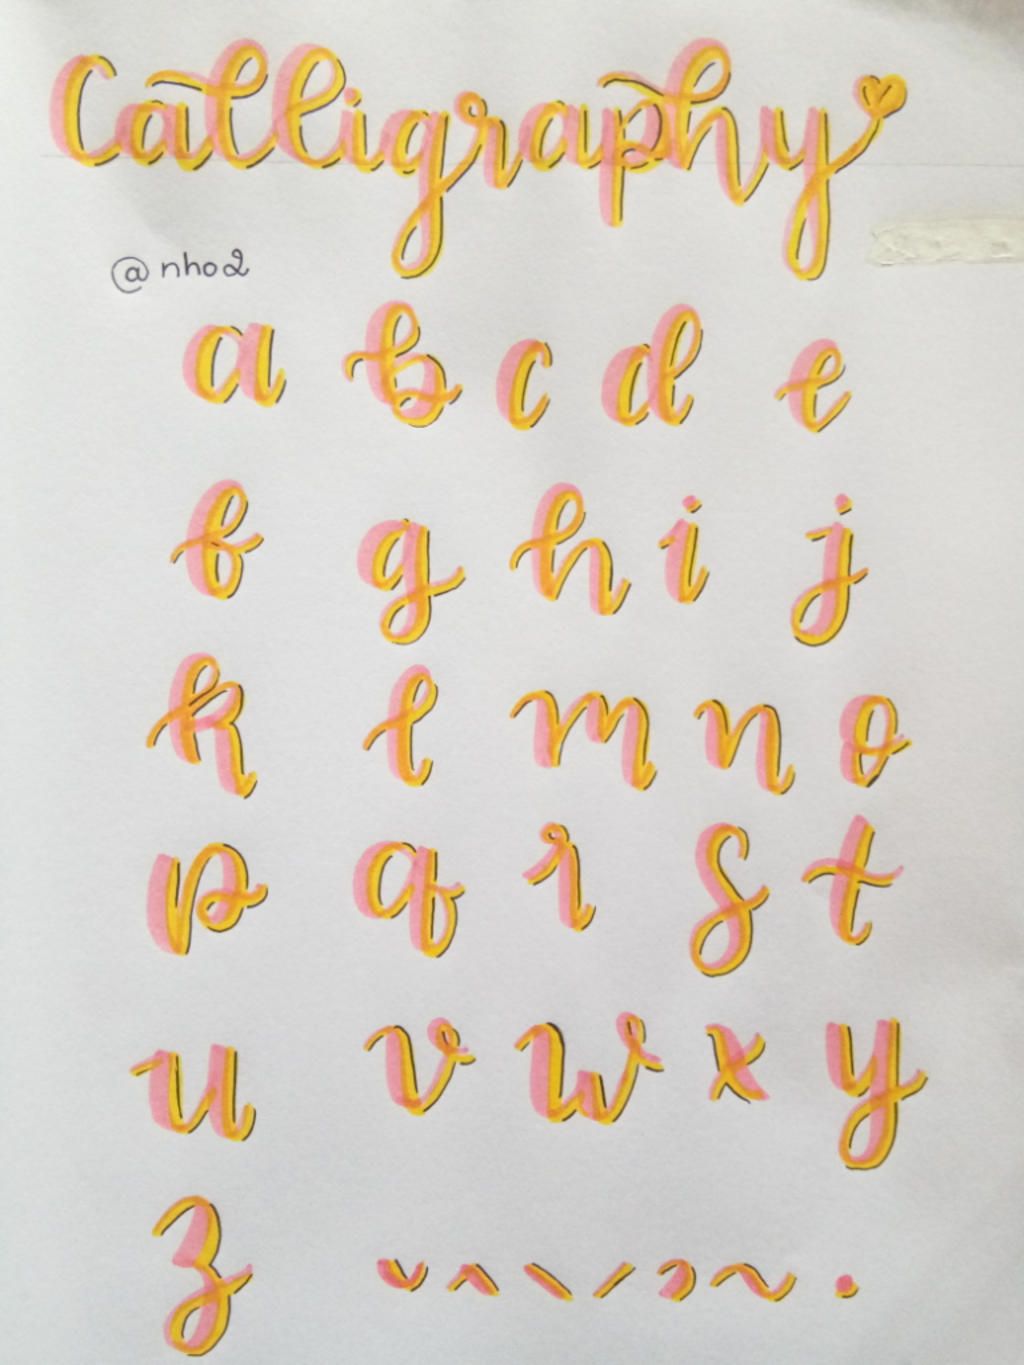 Calligraphy
@nho2
a b c d e
f g h i j
k l m n o
p q r s t
u v w x y
z ˘ ^ \ / ̉ ~ .